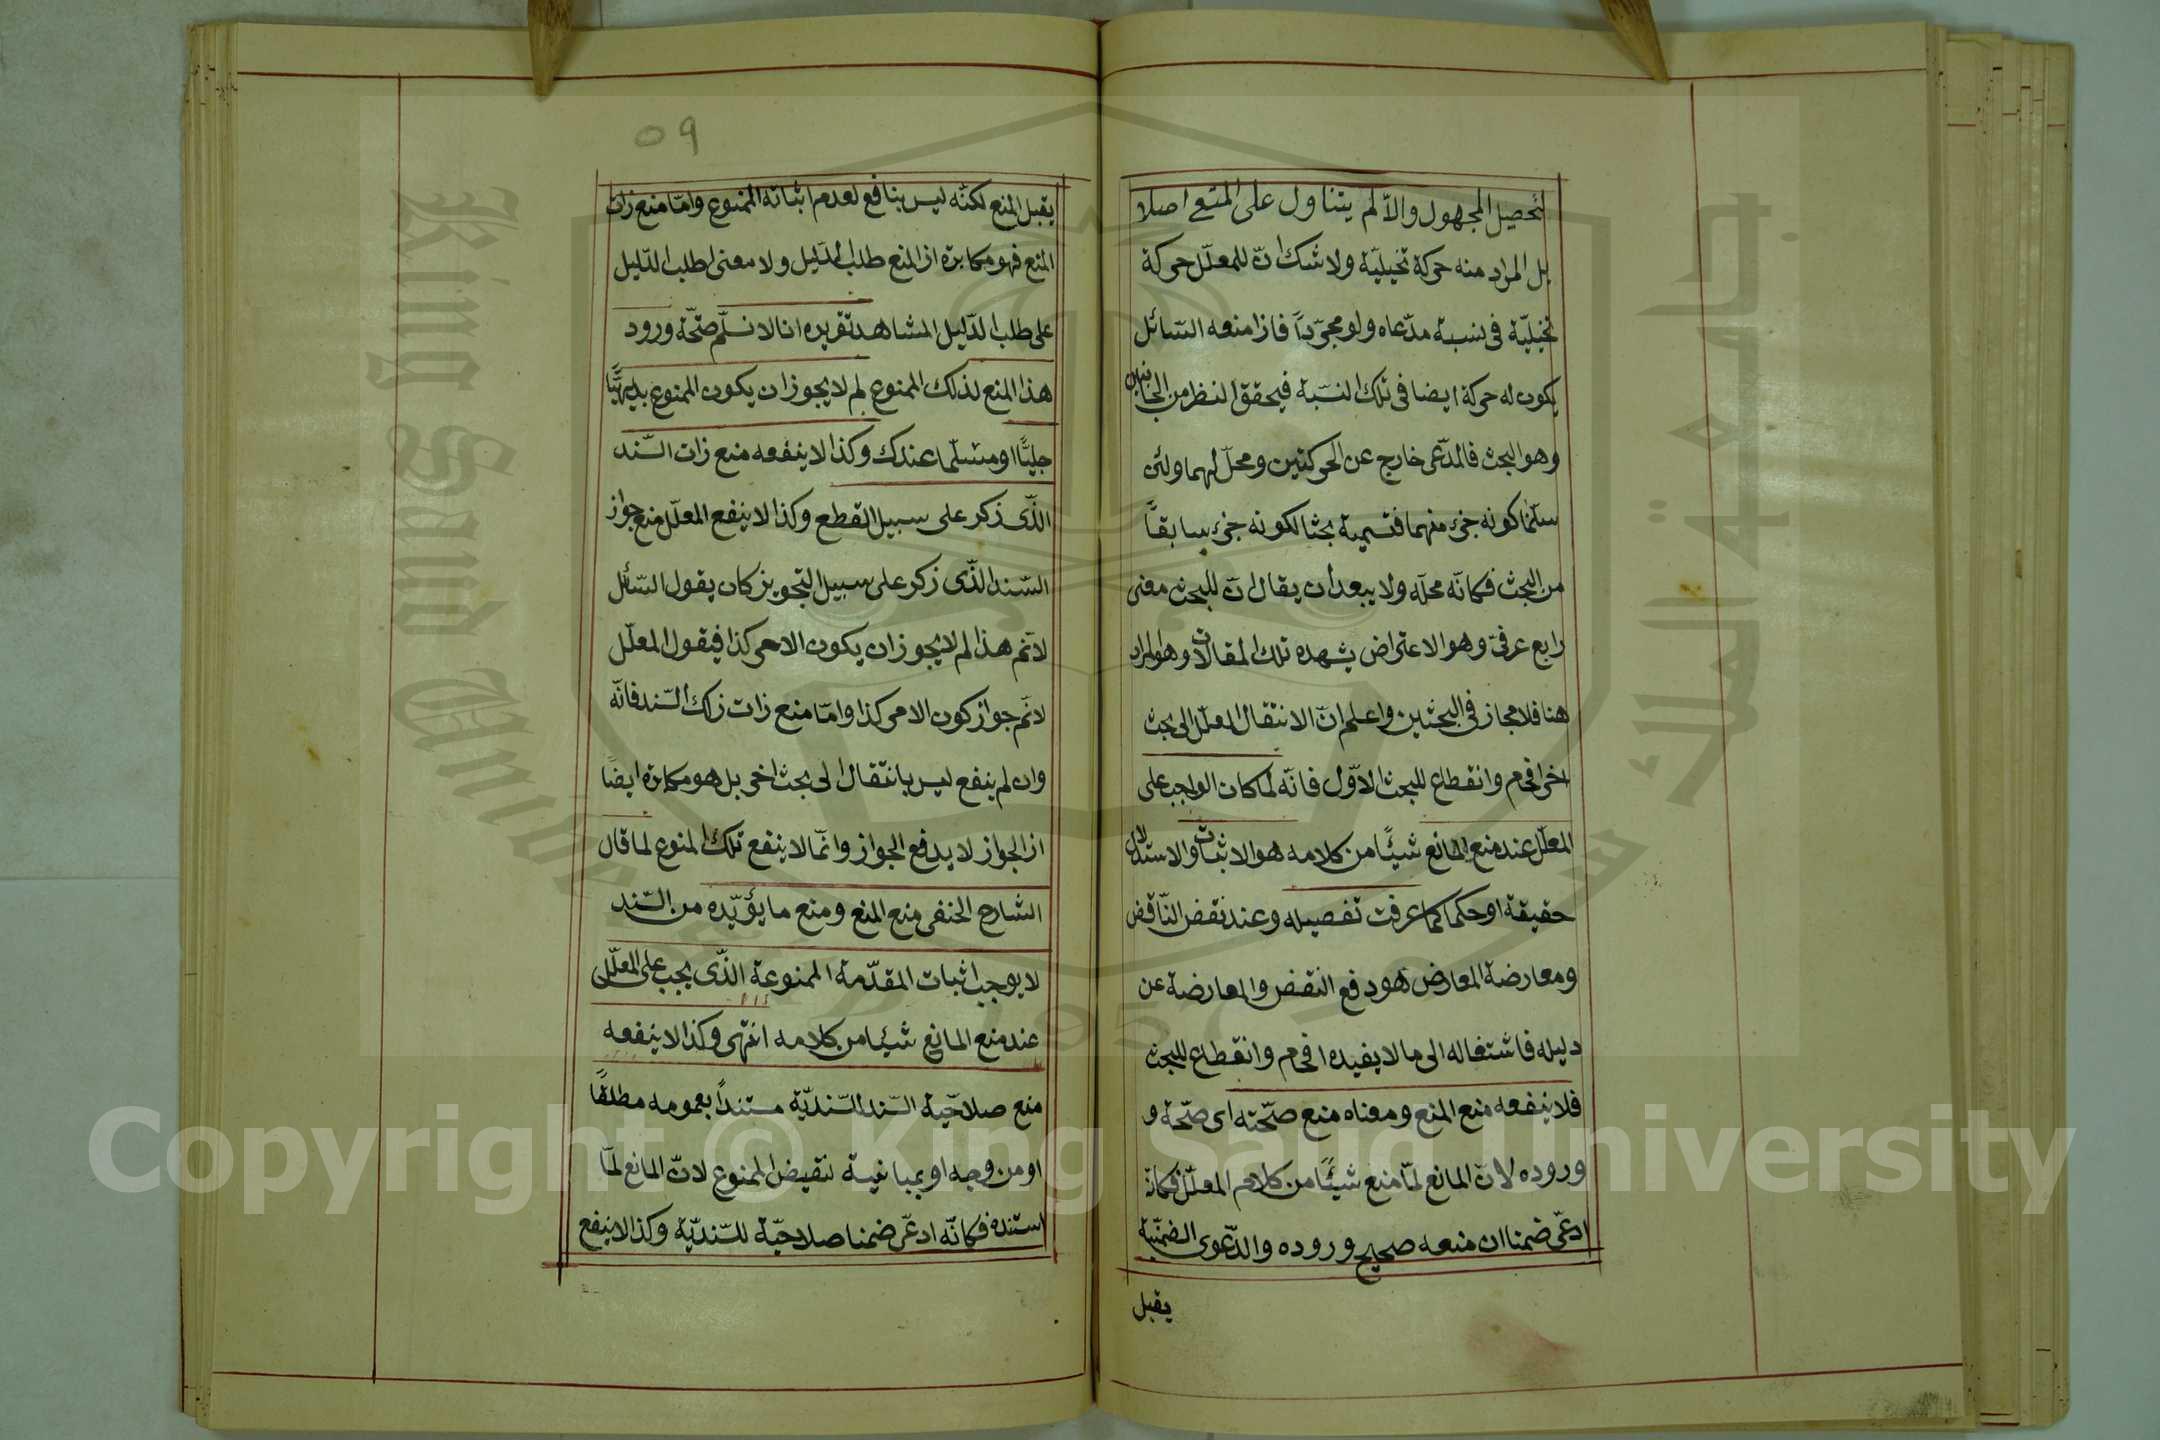 لتحصيل المجهول والّا لم يتناول على المنع اصلا
بل المراد منه حركة تخييليّة ولا شك انّ للمعلّل حركة
تخييليّة فى نسبة مدّعاه ولو مجرّداً فاذا منعه السّائل
يكون له حركة ايضا فى تلك النسبة فيحقق النظر من الجانبين
وهو البحث فالمدّعى خارج عن الحركتين ومحلّ لهما ولئن
سلّمنا كونه جزء منهما فتسمية بحثا لكونه جزء سابقاً
من البحث فكانّه محلّه ولا يبعد ان يقال انّ للبحث معنى
رابع عرفىّ وهو الاعتراض يشهده تلك المقالات وهو المراد
هنا فلا مجاز فى البحثين واعلم انّ الانتقال المعلّل الى بحث
اخر افحام وانقطاع للبحث الاوّل فانّه لما كان الواجب على
المعلّل عند منع المانع شيئًا من كلامه هو الاثبات والاستدلال
حقيقة او حكما كما عرفت تفصيله وعند نقض النّاقض
ومعارضة المعارض هو دفع النقض والمعارضة عن
دليله فاشتغاله الى ما لا يفيده افحام وانقطاع للبحث
فلا ينفعه منع المنع ومعناه منع صحّته اى صحّة و
وروده لانّ المانع لمّا منع شيئًا من كلام المعلّل فكانّه
ادعّى ضمنا ان منعه صحيح وروده والدّعوى الضمنيّة
يقبل
٥٩
يقبل المنع لكنّه ليس بنافع لعدم اثباته الممنوع وامّا منع ذات
المنع فهو مكابرة اذ المنع طلب الدّليل ولا معنى لطلب الدّليل
على طلب الدّليل المشاهد تقريره انا لا نسلّم صحّة ورود
هذا المنع لذلك الممنوع لم لا يجوز ان يكون الممنوع بديهيًّا
جليًّا او مسلّما عندك وكذا لا ينفعه منع ذات السّند
الذّى ذكر على سبيل القطع وكذا لا ينفع المعلّل منع جواز
السّند الذّى ذكر على سبيل التجويز كان يقول السّائل
لانّم هذا لم لا يجوز ان يكون الامر كذا فيقول المعلّل
لانّم جواز كون الامر كذا وامّا منع ذات ذلك السّند فانّه
وان لم ينفع ليس بانتقال الى بحث اخر بل هو مكابرة ايضًا
اذ الجواز لا يدفع الجواز وانّما لا ينفع تلك المنوع لما قال
الشارح الحنفى منع المنع ومنع ما يؤيّده من السّند
لا يوجب اثبات المقدّمة الممنوعة الذّى يجب على المعلّل
عند منع المانع شيئا من كلامه انتهى وكذا لا ينفعه
منع صلاحيّة السّند للسّنديّة مستنداً بعمومه مطلقًا
او من وجه او بمباينية لنقيض الممنوع لانّ المانع لمّا
استنده فكانّه ادعّى ضمنا صلاحيّة للسّنديّة وكذا لا ينفع
Copyright © King Saud University
King Saud University
1957